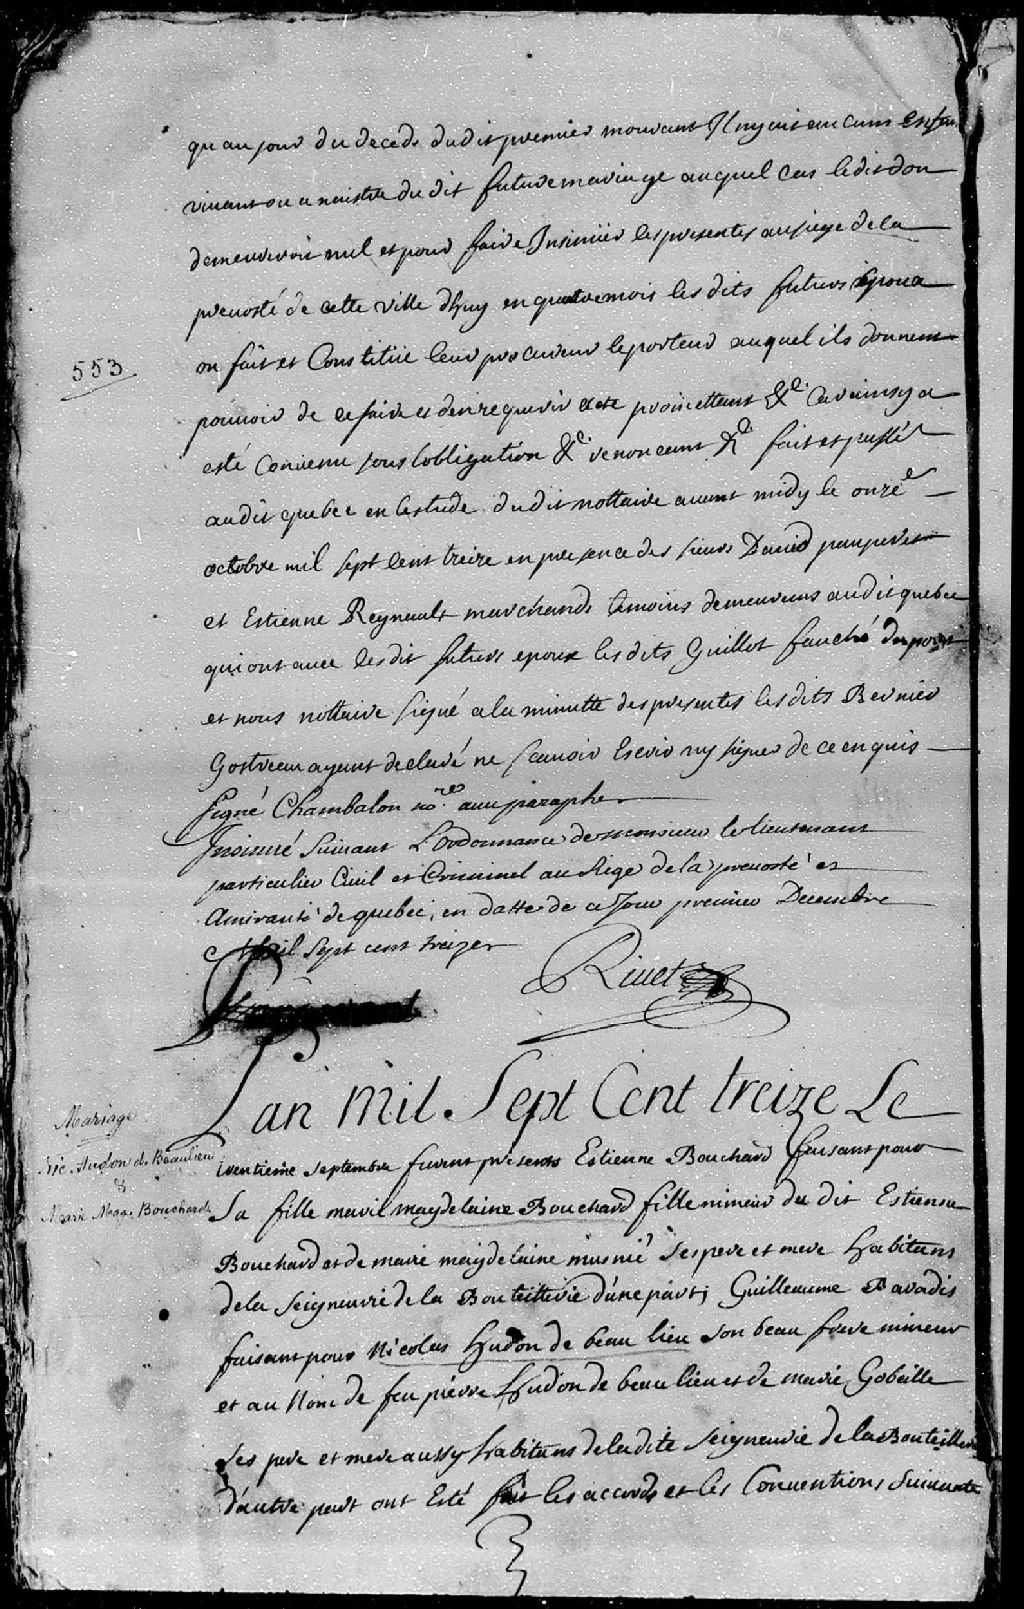 qu au jour du deceds dudit premier mourant Il ny ait aucuns enfan
vivant ou a naistre du dit futur mariage auquel cas ledit don
demeureroit nul et pour faire Insinüer les presentes au siege de la
prevosté de cette ville dhuy en quatre mois les dits futurs Epoux
553
on fait et Constitüé leur procureur le porteur auquel ils donnent
pouvoir de ce faire et den requerir acte promettant &ca. Car ainsy a
esté Convenu sous lobligation &ca. renonceant &ca fait et passé
audit quebec en lestude dudit nottaire avant midy le onze e
octobre mil sept Cent treize en presence des sieurs David pauperet
et Estienne Reynault marchands temoins demeurans audit quebec
qui ont avec lesdit futurs epoux lesdits Guillot fauché Dupont
et nous nottaire signé a la minutte des presentes lesdits Bernier
Gostreau ayant declaré ne scavoir Escrir ny signer de ce enquis
Signé Chambalon no.re avec paraphe
Insinüé suivant L'ordonnance de monsieur le lieutenant
particulier Civil et Criminel au siege de la prevosté et
Amirauté de quebec, en datte de ce Jour premier Decembre
Mil sept cent treize
Rivet
Lan mil Sept Cent treize Le
Mariage
Nic. Hudon de Beaulieu
&
Marie Magd. Bouchard
trentieme septembre furent presents Estienne Bouchard faisant pour
Sa fille marie maydelaine Bouchard fille mineur du dit Estienne
Bouchard et de marie maydelaine meusnié ses pere et mere habitans
de la seigneurie de la Bouteillerie d'une part; Guilleaume Paradis
faisant pour Nicolas Hudon de beau lieu son beau frere mineur
et au Nom de feu pierre Hudon de beaulieu et de marie Gobeille
ses pere et mere aussy habitans de la dite seigneurie de la Bouteillerie
d'autre part ont Esté fait les accords et les Conventions suivante